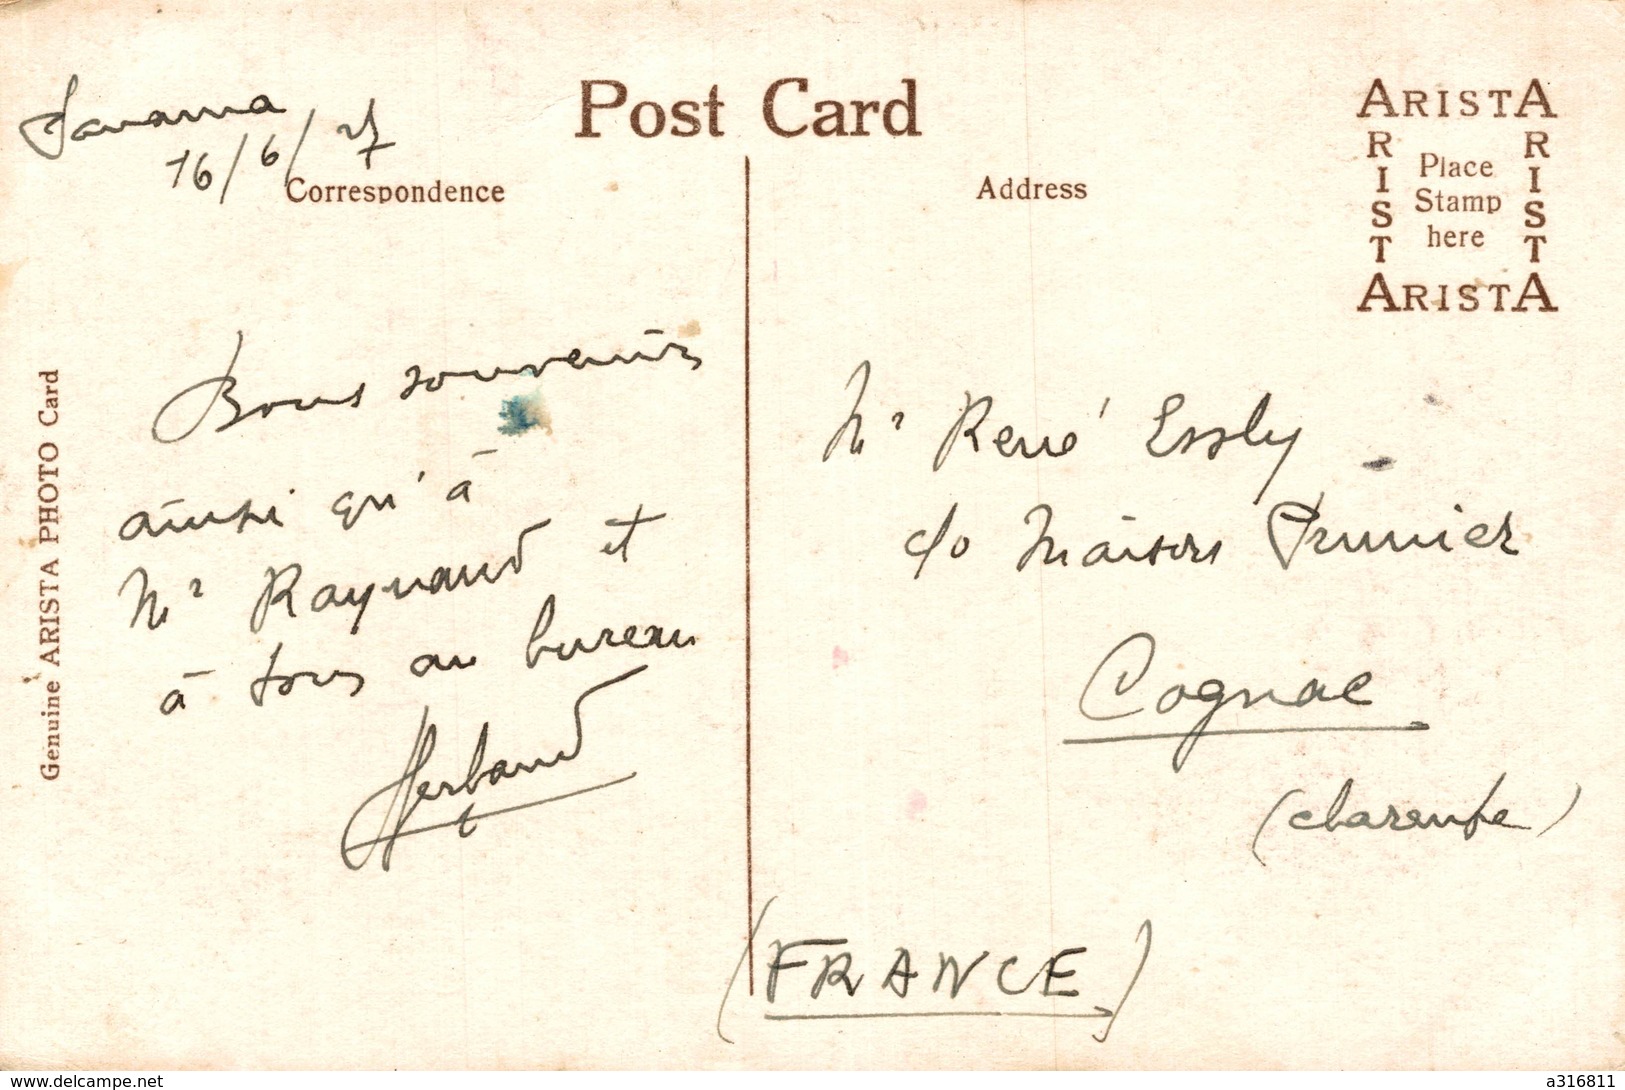 Panama
16/6/27
Post Card
Correspondence
Address
ARISTA
ARISTA
Place
Stamp
here
ARISTA
ARISTA
Genuine ARISTA PHOTO Card
Bons souvenirs
ainsi qu'à
Mr Raynaud et
à tous au bureau
Mr René Essly
c/o Maison Prunier
Cognac
(charente)
(FRANCE)
www.delcampe.net
a316811